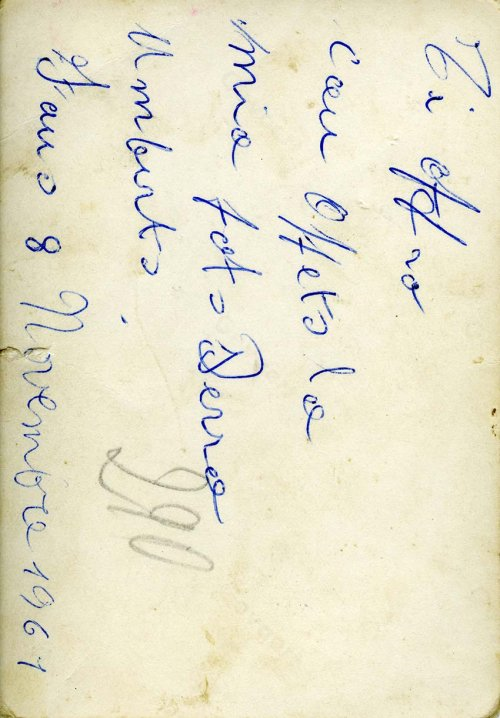 Ti offro
Con Offeto la
mia foto Serra
Umberto
Fano 8 Novembre 1961
290